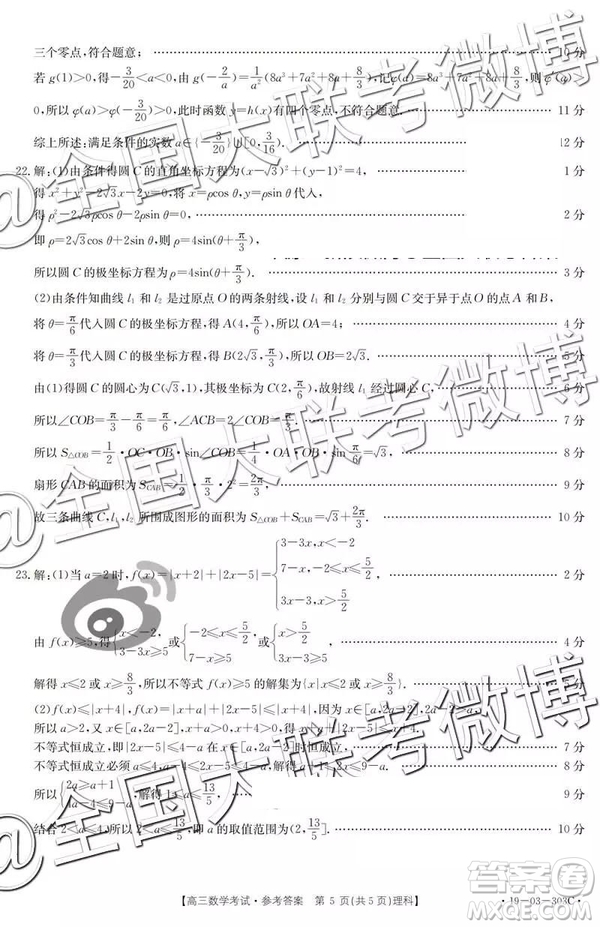 三个零点,符合题意; 10分
若g(1)>0,得-3/20<a<0,由g(-2/a)=1/a²(8a³+7a²+8a+8/3),记φ(a)=8a³+7a²+8a+8/3,则φ(a)>
0,所以φ(a)>φ(-3/20)>0,此时函数y=h(x)有四个零点,不符合题意. 11分
综上所述:满足条件的实数a∈{-3/20}∪[0,3/16). 12分
22.解:(1)由条件得圆C的直角坐标方程为(x-√3)²+(y-1)²=4, 1分
得x²+y²-2√3x-2y=0,将x=ρcos θ,y=ρsin θ代入,
得ρ²-2√3ρcos θ-2ρsin θ=0, 2分
即ρ=2√3cos θ+2sin θ,则ρ=4sin(θ+π/3),
所以圆C的极坐标方程为ρ=4sin(θ+π/3). 3分
(2)由条件知曲线l₁和l₂是过原点O的两条射线,设l₁和l₂分别与圆C交于异于点O的点A和B,
将θ=π/6代入圆C的极坐标方程,得A(4,π/6),所以OA=4; 4分
将θ=π/3代入圆C的极坐标方程,得B(2√3,π/3),所以OB=2√3. 5分
由(1)得圆C的圆心为C(√3,1),其极坐标为C(2,π/6),故射线l₁经过圆心C, 6分
所以∠COB=π/3-π/6=π/6,∠ACB=2∠COB=π/3. 7分
所以S△COB=1/2·OC·OB·sin∠COB=1/4·OA·OB·sin π/6=√3, 8分
扇形CAB的面积为S_CAB=1/2·π/3·2²=2π/3. 9分
故三条曲线C,l₁,l₂所围成图形的面积为S△COB+S_CAB=√3+2π/3. 10分
23.解:(1)当a=2时,f(x)=|x+2|+|2x-5|={3-3x,x<-2 7-x,-2≤x≤5/2, 3x-3,x>5/2 2分
由f(x)≥5,得{x<-2 3-3x≥5或{-2≤x≤5/2 7-x≥5或{x>5/2 3x-3≥5, 4分
解得x≤2或x≥8/3,所以不等式f(x)≥5的解集为{x|x≤2或x≥8/3}. 5分
(2)f(x)≤|x+4|,即|x+a|+|2x-5|≤|x+4|,因为x∈[a,2a-2],2a-2>a,
所以a>2,又x∈[a,2a-2],x+a>0,x+4>0,得x+a+|2x-5|≤x+4,
不等式恒成立,即|2x-5|≤4-a在x∈[a,2a-2]时恒成立, 7分
不等式恒成立必须a≤4,a-4≤2x-5≤4-a,解得a+1≤2x≤9-a. 8分
所以{2a≥a+1 4a-4≤9-a,解得1≤a≤13/5, 9分
结合2<a≤4,所以2<a≤13/5,即a的取值范围为(2,13/5]. 10分
【高三数学考试·参考答案 第5页(共5页)理科】
·19-03-303C·
@全国大联考微博
@全国大联考微博
答案圈
MXQE.COM